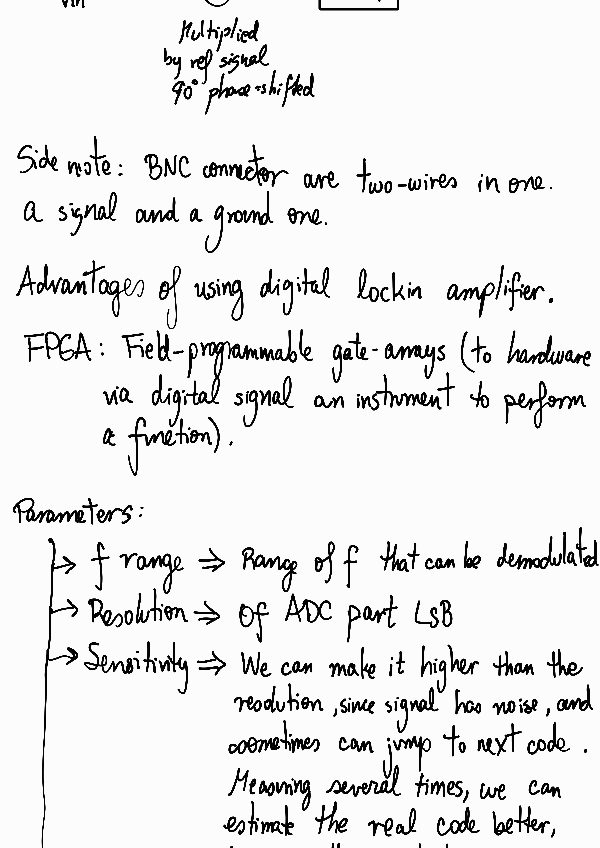 Vin
Multiplied
by ref signal
90° phase-shifted
Side note: BNC connector are two-wires in one.
a signal and a ground one.
Advantages of using digital lockin amplifier.
FPGA: Field-programmable gate-arrays (to hardware
via digital signal an instrument to perform
a function).
Parameters:
→ f range ⇒ Range of f that can be demodulated
→ Resolution ⇒ Of ADC part LSB
→ Sensitivity ⇒ We can make it higher than the
resolution, since signal has noise, and
sometimes can jump to next code.
Measuring several times, we can
estimate the real code better,